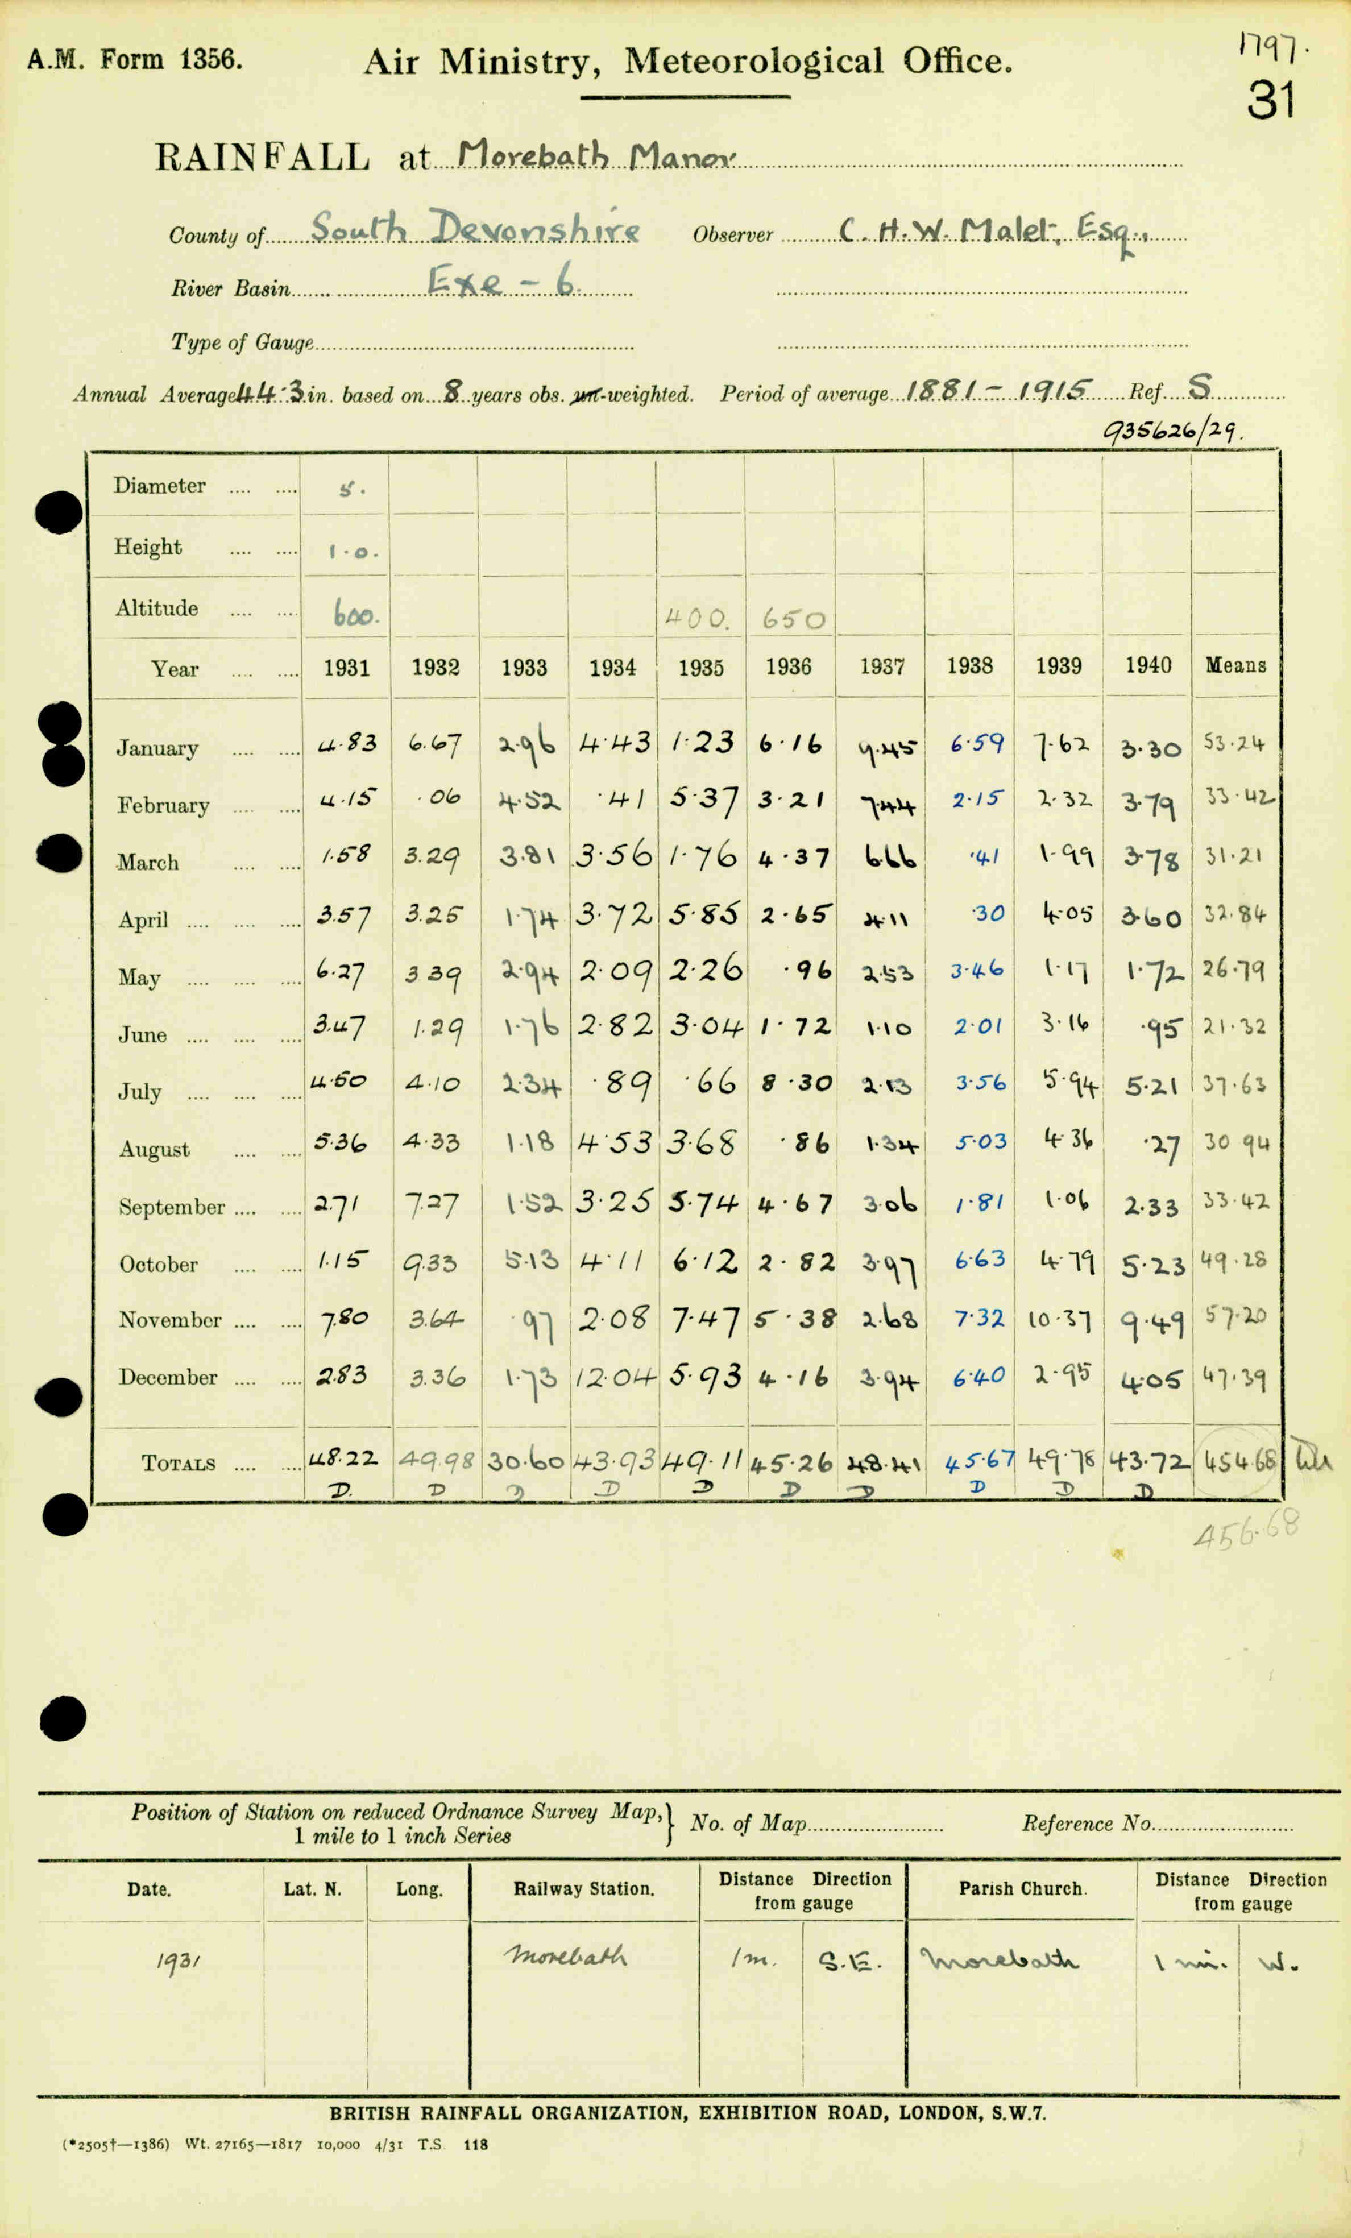 1797.
A.M. Form 1356. Air Ministry, Meteorological Office.
31
RAINFALL at Morebath Manor
County of South Devonshire Observer C. H. W. Malet, Esq.,
River Basin Exe - 6.
Type of Gauge
Annual Average 44.3 in. based on 8 years obs. un-weighted. Period of average 1881 - 1915 Ref. S
935626/29.
Diameter .... .... 5.
Height .... .... 1.0.
Altitude .... .... 600. 400. 650
Year .... .... 1931 1932 1933 1934 1935 1936 1937 1938 1939 1940 Means
January .... .... 4.83 6.67 2.96 4.43 1.23 6.16 9.45 6.59 7.62 3.30 53.24
February .... .... 4.15 .06 4.52 .41 5.37 3.21 7.44 2.15 2.32 3.79 33.42
March .... .... 1.58 3.29 3.81 3.56 1.76 4.37 6.66 .41 1.99 3.78 31.21
April .... .... .... 3.57 3.25 1.74 3.72 5.85 2.65 4.11 .30 4.05 3.60 32.84
May .... .... .... 6.27 3.39 2.94 2.09 2.26 .96 2.53 3.46 1.17 1.72 26.79
June .... .... .... 3.47 1.29 1.76 2.82 3.04 1.72 1.10 2.01 3.16 .95 21.32
July .... .... .... 4.50 4.10 2.34 .89 .66 8.30 2.13 3.56 5.94 5.21 37.63
August .... .... 5.36 4.33 1.18 4.53 3.68 .86 1.34 5.03 4.36 .27 30 94
September .... .... 2.71 7.27 1.52 3.25 5.74 4.67 3.06 1.81 1.06 2.33 33.42
October .... .... 1.15 9.33 5.13 4.11 6.12 2.82 3.97 6.63 4.79 5.23 49.28
November .... .... 7.80 3.64 .97 2.08 7.47 5.38 2.68 7.32 10.37 9.49 57.20
December .... .... 2.83 3.36 1.73 12.04 5.93 4.16 3.94 6.40 2.95 4.05 47.39
TOTALS .... .... 48.22 49.98 30.60 43.93 49.11 45.26 48.41 45.67 49.78 43.72 454.68
D. D D D D D D D D D
456.68
Position of Station on reduced Ordnance Survey Map, } No. of Map Reference No.
1 mile to 1 inch Series
Date. Lat. N. Long. Railway Station. Distance Direction from gauge Parish Church. Distance Direction from gauge
1931 Morebath 1 m. S.E. Morebath 1 mi. W.
BRITISH RAINFALL ORGANIZATION, EXHIBITION ROAD, LONDON, S.W.7.
(*2505†—1386) Wt. 27165—1817 10,000 4/31 T.S. 118